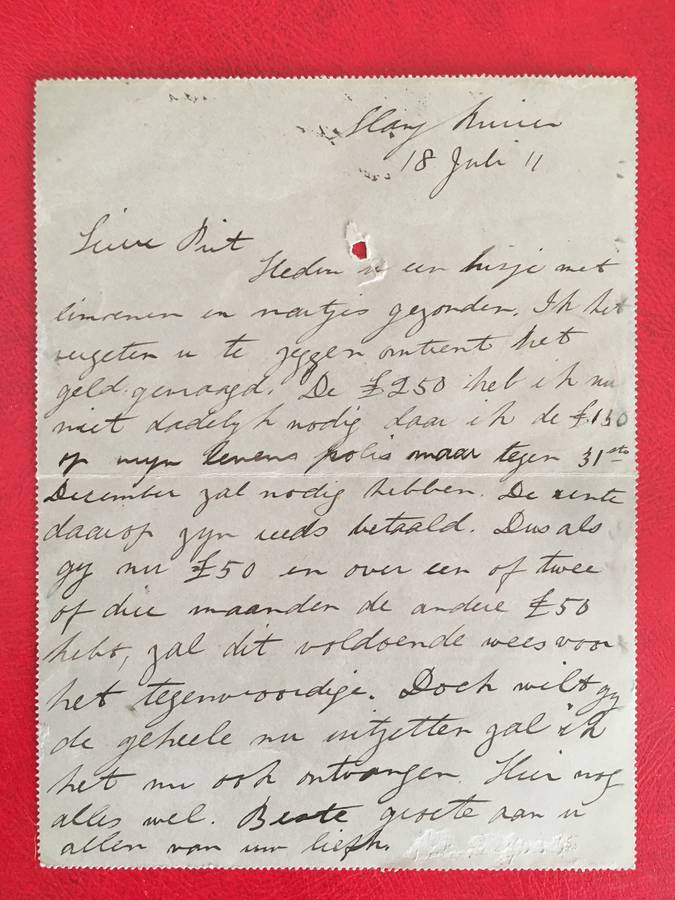 Slang Rivier
18 Juli 11
Lieve Piet
Heden is een kisje met
limoenen en nartjis gezonden. Ik het
vergeten u te zeggen omtrent het
geld gevraagd. De £250 heb ik nu
niet dadelyk nodig daar ik de £150
op myn levens polis maar tegen 31ste
December zal nodig hebben. De rente
daarop zyn reeds betaald. Dus als
gy nu £50 en over een of twee
of drie maanden de andere £50
hebt, zal dit voldoende wees voor
het tegenwoordige. Doch wilt gy
de geheele nu uitzetten zal ik
het nu ook ontvangen. Hier nog
alles wel. Beste groete aan u
allen van uw liefh.